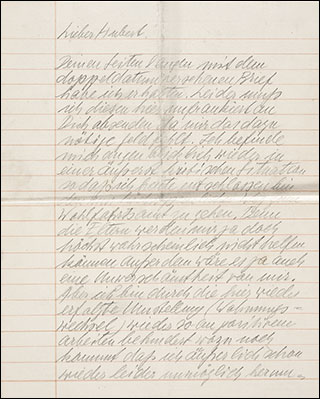 Lieber Hubert.
Deinen ersten langen mit dem
doppeldatum versehenen Brief
habe ich erhalten. Leider muss
ich diesen hier unfrankiert an
Dich absenden, da mir das dazu
nötige Geld fehlt. Ich befinde
mich augenblicklich wieder in
einer äußerst kritischen Situation
so dass ich
Wohlfahrtsamt zu gehen. Denn
die Eltern werden mir ja doch
höchst wahrscheinlich nicht helfen
können außerdem wäre es ja auch
eine Unverschämtheit von mir.
Aber ich bin durch die hier wieder
erfolgte Umstellung (Wohnungs-
wechsel) wieder so am positiven
arbeiten behindert wozu noch
kommt daß ich äußerlich schon
wieder leider unmöglich herum-